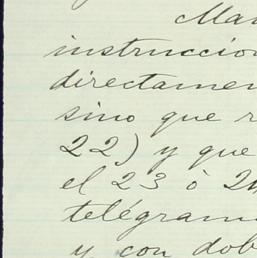 Man
instruccion
directamen
sino que r
22) y que
el 23 ò 24
telégram
y con dob